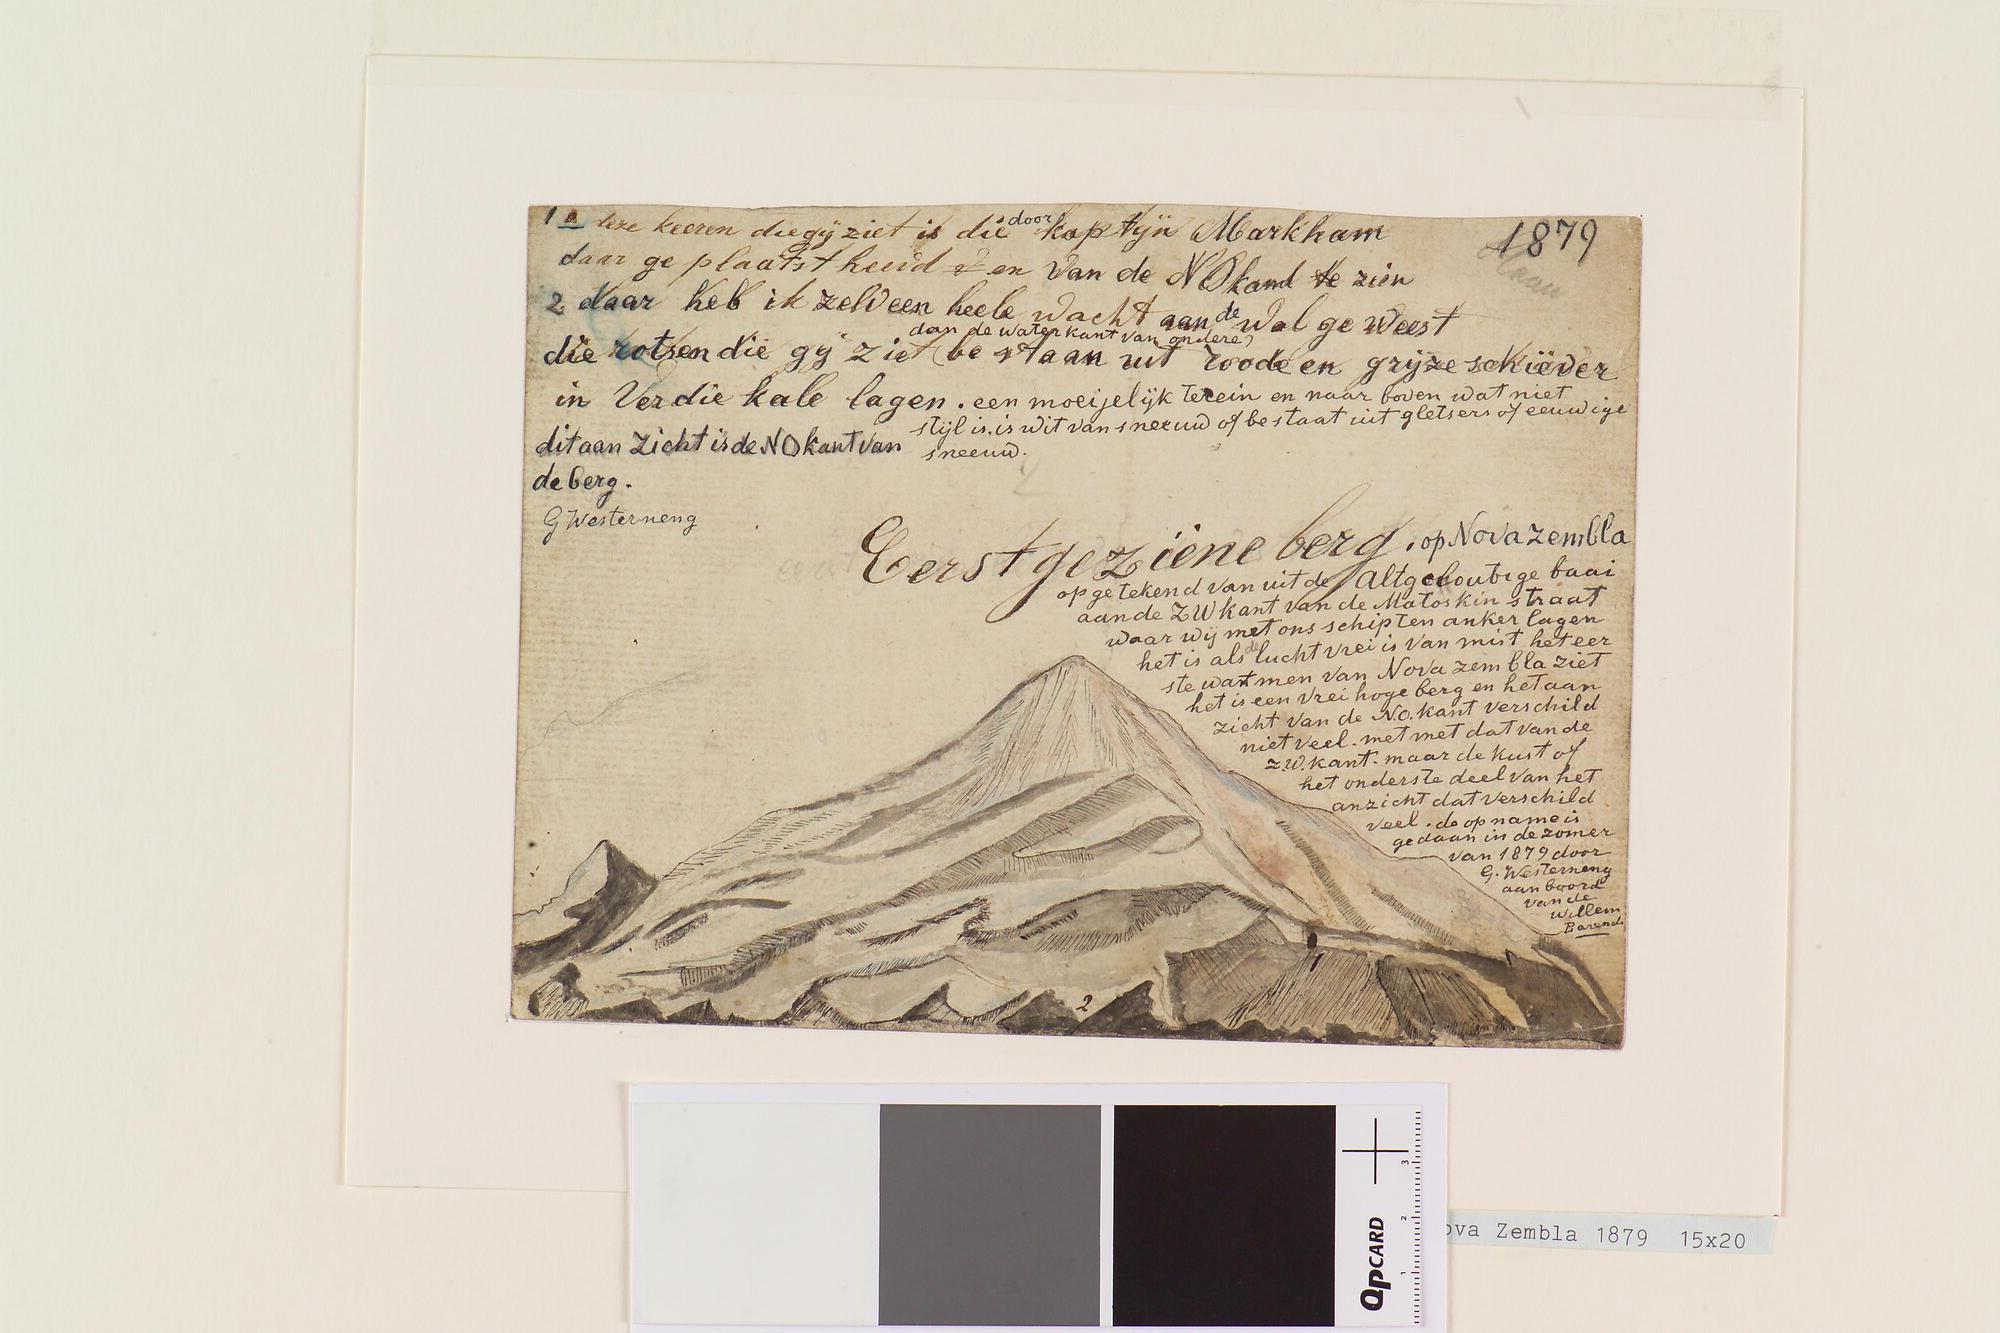 1e deze keeren die gij ziet is die door kaptijn Markham
1879
daar ge plaatst heeid en van de NOkand te zien
2 daar heb ik zelv een heele wacht aan de wal ge weest
dan de waterkant van ondere)
die rotsen die gij ziet (be staan uit roode en grijze schiever
in Verdie kale lagen. een moeijelijk terein en naar boven wat niet
stijl is. is wit van sneeuw of bestaat uit gletsers of eeuwige
sneeuw.
dit aan Zicht is de NO kant van
de berg.
G Westerneng
Eerst geziene berg. op Nova Zembla
opgetekend van uit de Altgeloubige baai
aan de ZW kant van de Matoskin straat
waar wij met ons schip ten anker lagen
het is als de lucht vrei is van mist het eer
ste wat men van Nova zembla ziet
het is een vrei hoge berg en het aan
zicht van de N.O. kant verschild
niet veel. met met dat van de
z.w. kant. maar de kust of
het onderste deel van het
anzicht dat verschild
veel. de op name is
gedaan in de zomer
van 1879 door
G. Westerneng
aan boord
van de
Willem
Barends
1
2
ova Zembla 1879 15x20
QPCARD
1 2 3